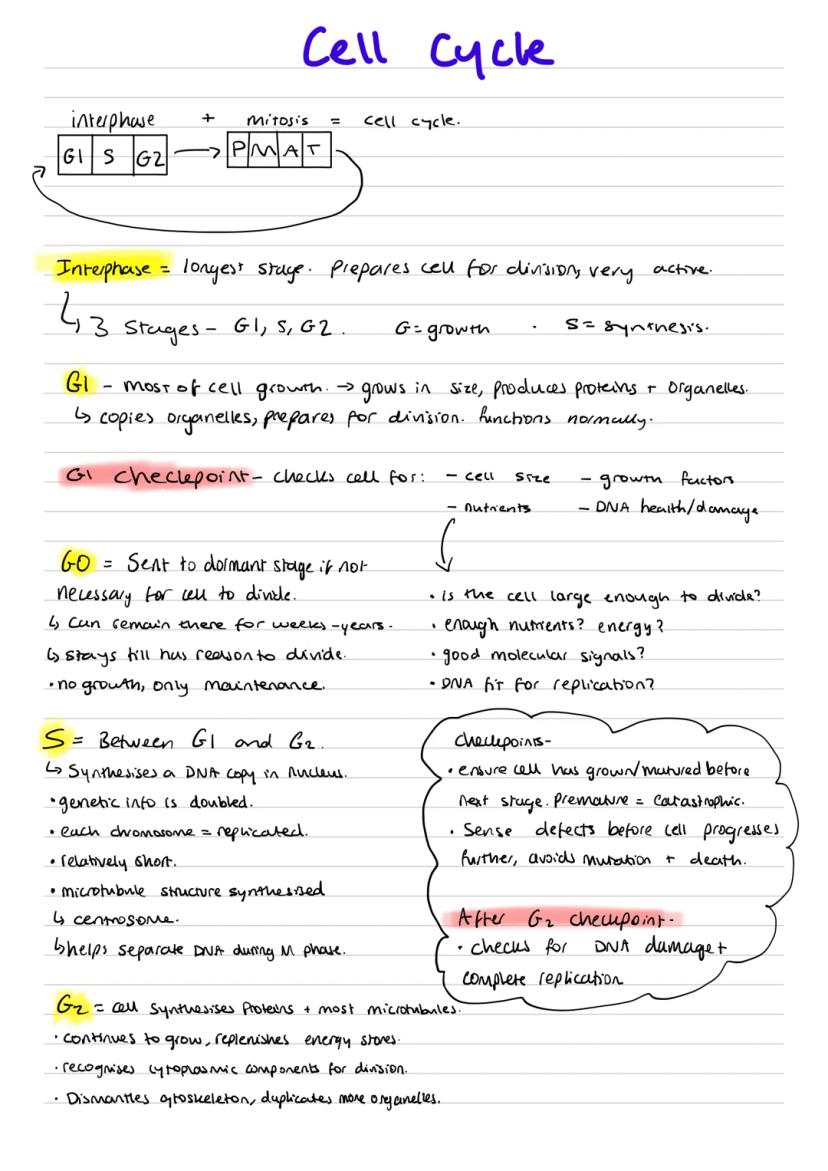 Cell Cycle
interphase + mitosis = cell cycle.
G1 S G2 → P M A T
Interphase = longest stage. Prepares cell for division, very active.
↳ 3 Stages - G1, S, G2. G = growth . S = synthesis.
G1 - most of cell growth. → grows in size, produces proteins + organelles.
↳ copies organelles, prepares for division. functions normally.
G1 Checkpoint - checks cell for: - cell size - growth factors
- nutrients - DNA health/damage
G0 = Sent to dormant stage if not
necessary for cell to divide.
↳ can remain there for weeks-years.
↳ stays till has reason to divide.
• no growth, only maintenance.
• is the cell large enough to divide?
• enough nutrients? energy?
• good molecular signals?
• DNA fit for replication?
S = Between G1 and G2.
↳ Synthesises a DNA copy in nucleus.
• genetic info is doubled.
• each chromosome = replicated.
• relatively short.
• microtubule structure synthesised
↳ centrosome.
↳ helps separate DNA during M phase.
Checkpoints-
• ensure cell has grown/matured before
next stage. Premature = catastrophic.
• Sense defects before cell progresses
further, avoids mutation + death.
After G2 checkpoint -
• checks for DNA damage +
complete replication
G2 = cell synthesises Proteins + most microtubules.
• continues to grow, replenishes energy stores.
• recognises cytoplasmic components for division.
• Dismantles cytoskeleton, duplicates more organelles.